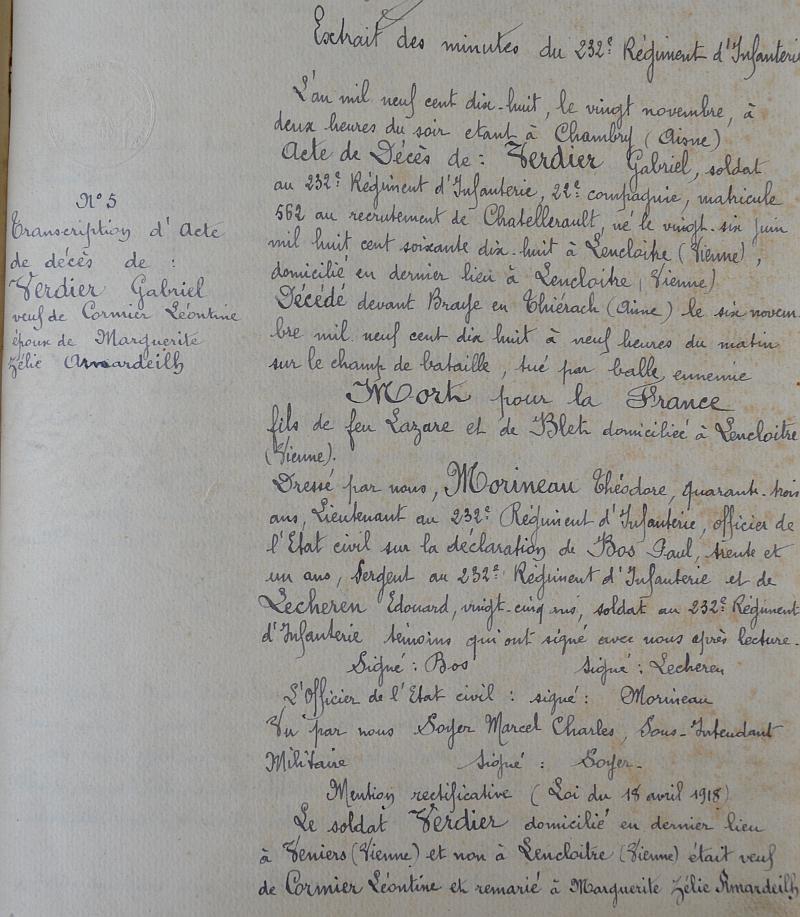 Extrait des minutes du 232e Régiment d'Infanterie
L'an mil neuf cent dix-huit, le vingt novembre, à
deux heures du soir etant à Chambry (Aisne)
Acte de Décès de : Verdier Gabriel, soldat
au 232e Régiment d'Infanterie, 22e compagnie, matricule
562 au recrutement de Chatellerault, né le vingt-six juin
mil huit cent soixante dix-huit à Lencloitre (Vienne),
domicilié en dernier lieu à Lencloitre (Vienne)
Décédé devant Braye en Thiérach (Aisne) le six novem-
bre mil neuf cent dix huit à neuf heures du matin
sur le champ de bataille, tué par balle ennemie
Mort pour la France
fils de feu Lazare et de Bleh domiciliée à Lencloitre
(Vienne).
Dressé par nous, Morineau Théodore, quarante-trois
ans, Lieutenant au 232e Régiment d'Infanterie, officier de
l'Etat civil sur la déclaration de Bos Paul, trente et
un ans, Sergent au 232e Régiment d'Infanterie et de
Lecheren Edouard, vingt-cinq ans, soldat au 232e Régiment
d'Infanterie témoins qui ont signé avec nous après lecture.
Signé : Bos signé : Lecheren
L'Officier de l'Etat civil : signé : Morineau
Vu par nous Soyer Marcel Charles, Sous-Intendant
Militaire signé : Soyer-
Mention rectificative (Loi du 18 avril 1918)
Le soldat Verdier domicilié en dernier lieu
à Veniers (Vienne) et non à Lencloitre (Vienne) était veuf
de Cormier Léontine et remarié à Marguerite Zélie Amardeilh
N° 5
Transcription d'Acte
de décès de :
Verdier Gabriel
veuf de Cormier Léontine
époux de Marguerite
Zélie Amardeilh